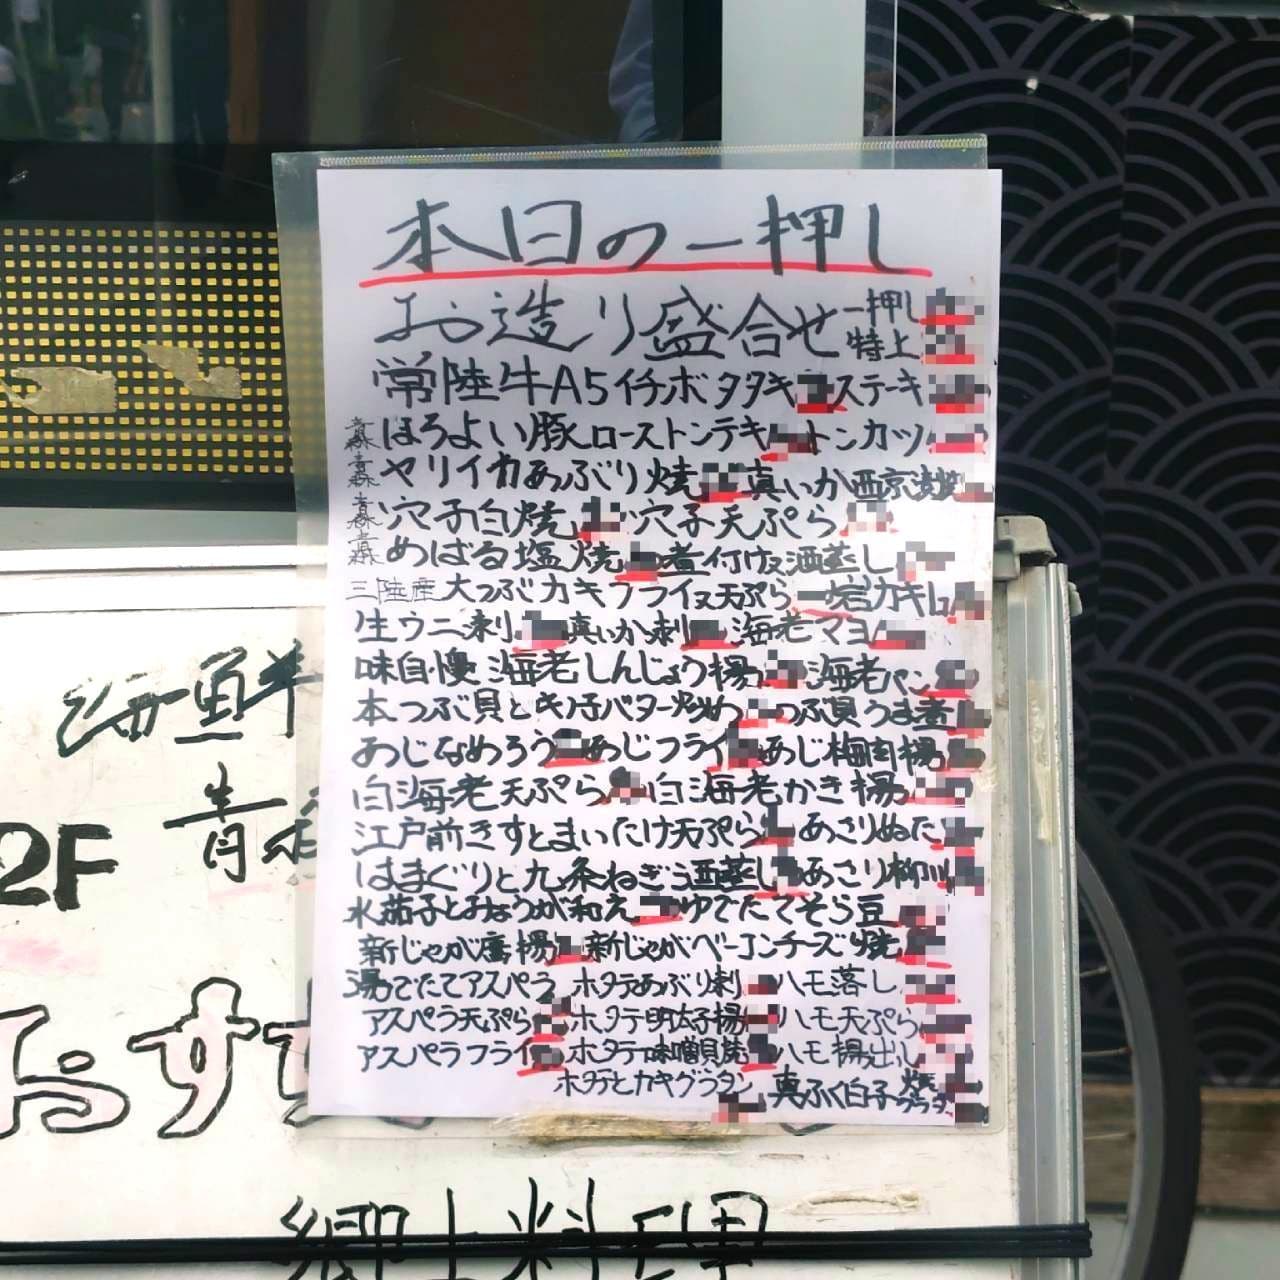 本日の一押し
お造り盛合せ 一押し 特上
常陸牛A5イチボ タタキ ステーキ
青森 ほろよい豚ローストンテキ トンカツ
青森 ヤリイカあぶり焼 真いか西京焼
青森 穴子白焼 穴子天ぷら
青森 めばる塩焼 煮付け又酒蒸し
三陸産 大つぶカキフライ又天ぷら 岩カキ
生ウニ刺 真いか刺 海老マヨ
味自慢 海老しんじょう揚 海老パン
本つぶ貝ときのこバター炒め つぶ貝うま煮
あじなめろう あじフライ あじ梅肉揚
白海老天ぷら 白海老かき揚
江戸前きすとまいたけ天ぷら あさりぬた
はまぐりと九条ねぎう酒蒸し あさり柳川
水茄子とみょうが和え ゆでたてそら豆
新じゃが唐揚 新じゃがベーコンチーズ焼
湯でたてアスパラ ホタテあぶり刺 ハモ落し
アスパラ天ぷら ホタテ明太子揚 ハモ天ぷら
アスパラフライ ホタテ味噌貝焼 ハモ揚出し
ホタテとカキグラタン 真ふぐ白子 焼 グラタン
海鮮
青森
2F
おすす
郷土料理